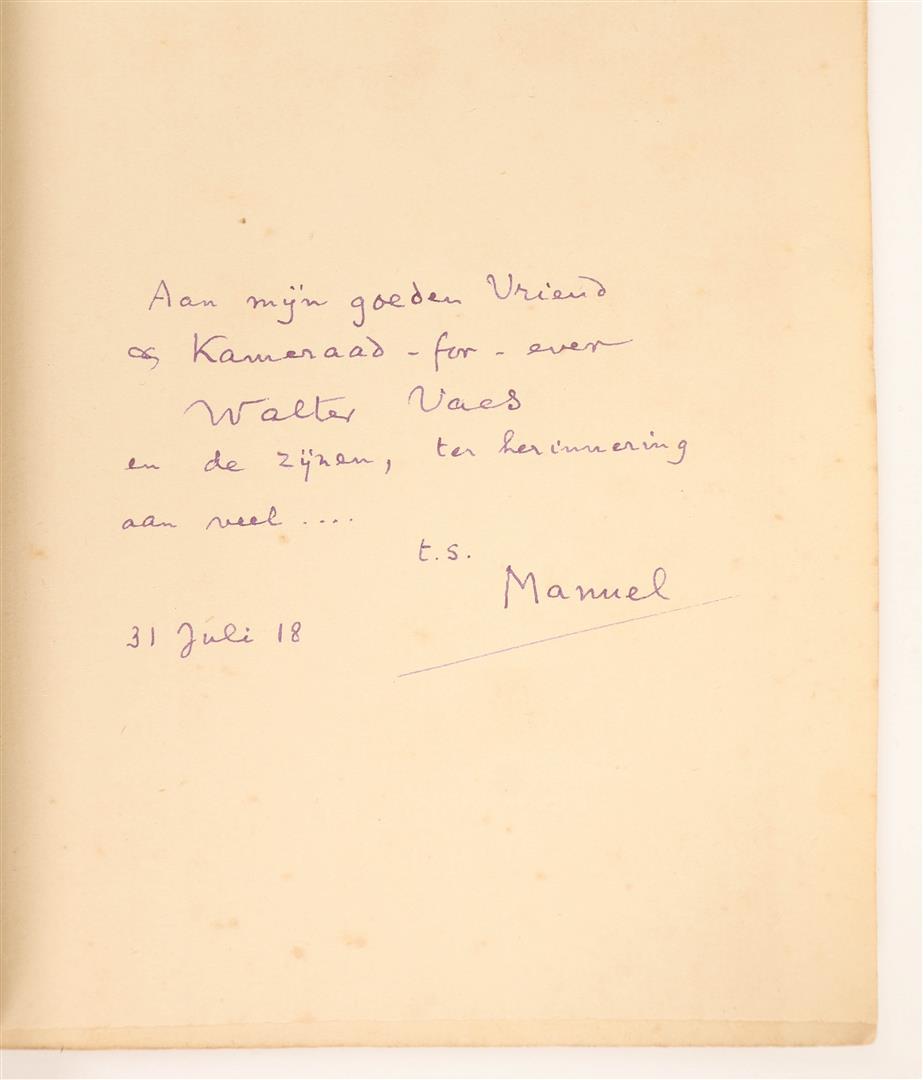 Aan mijn goeden Vriend
& Kameraad - for - ever
Walter Vaes
en de zijnen, ter herinnering
aan veel ....
t.s.
Manuel
31 Juli 18